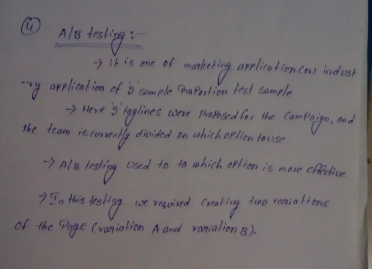 ④ A/B testing :-
→ It is one of marketing application (or) indust
-ry application of '2' sample Proportion test sample
→ Here '2' taglines were Proposed for the Campaign, and
the team is currently divided on which option to use.
→ A/B testing used to to which option is more effective
→ In this testing we required Creating two variations
of the Page (variation A and variation B).